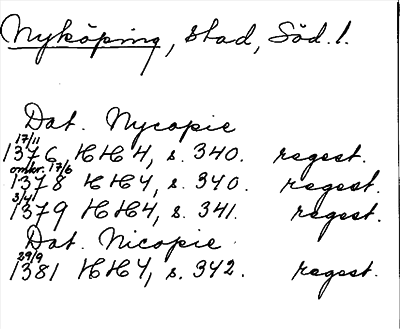 Nyköping, stad, Söd. l.
Dat. Nycopie
17/11
1376 HH4, s. 340. regest.
omkr. 17/6
1378 HH4, s. 340. regest.
3/4
1379 HH4, s. 341. regest.
Dat. Nicopie
29/9
1381 HH4, s. 342. regest.